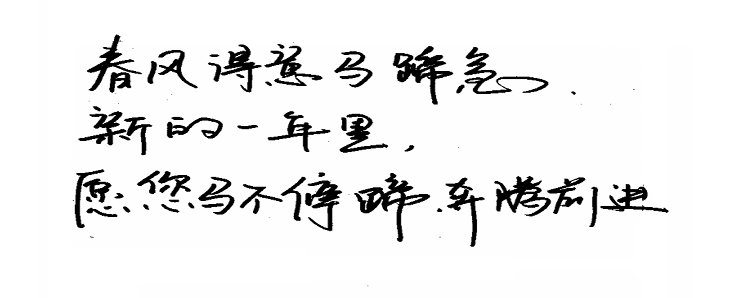 春风得意马蹄急.
新的一年里，
愿您马不停蹄.奔腾前进